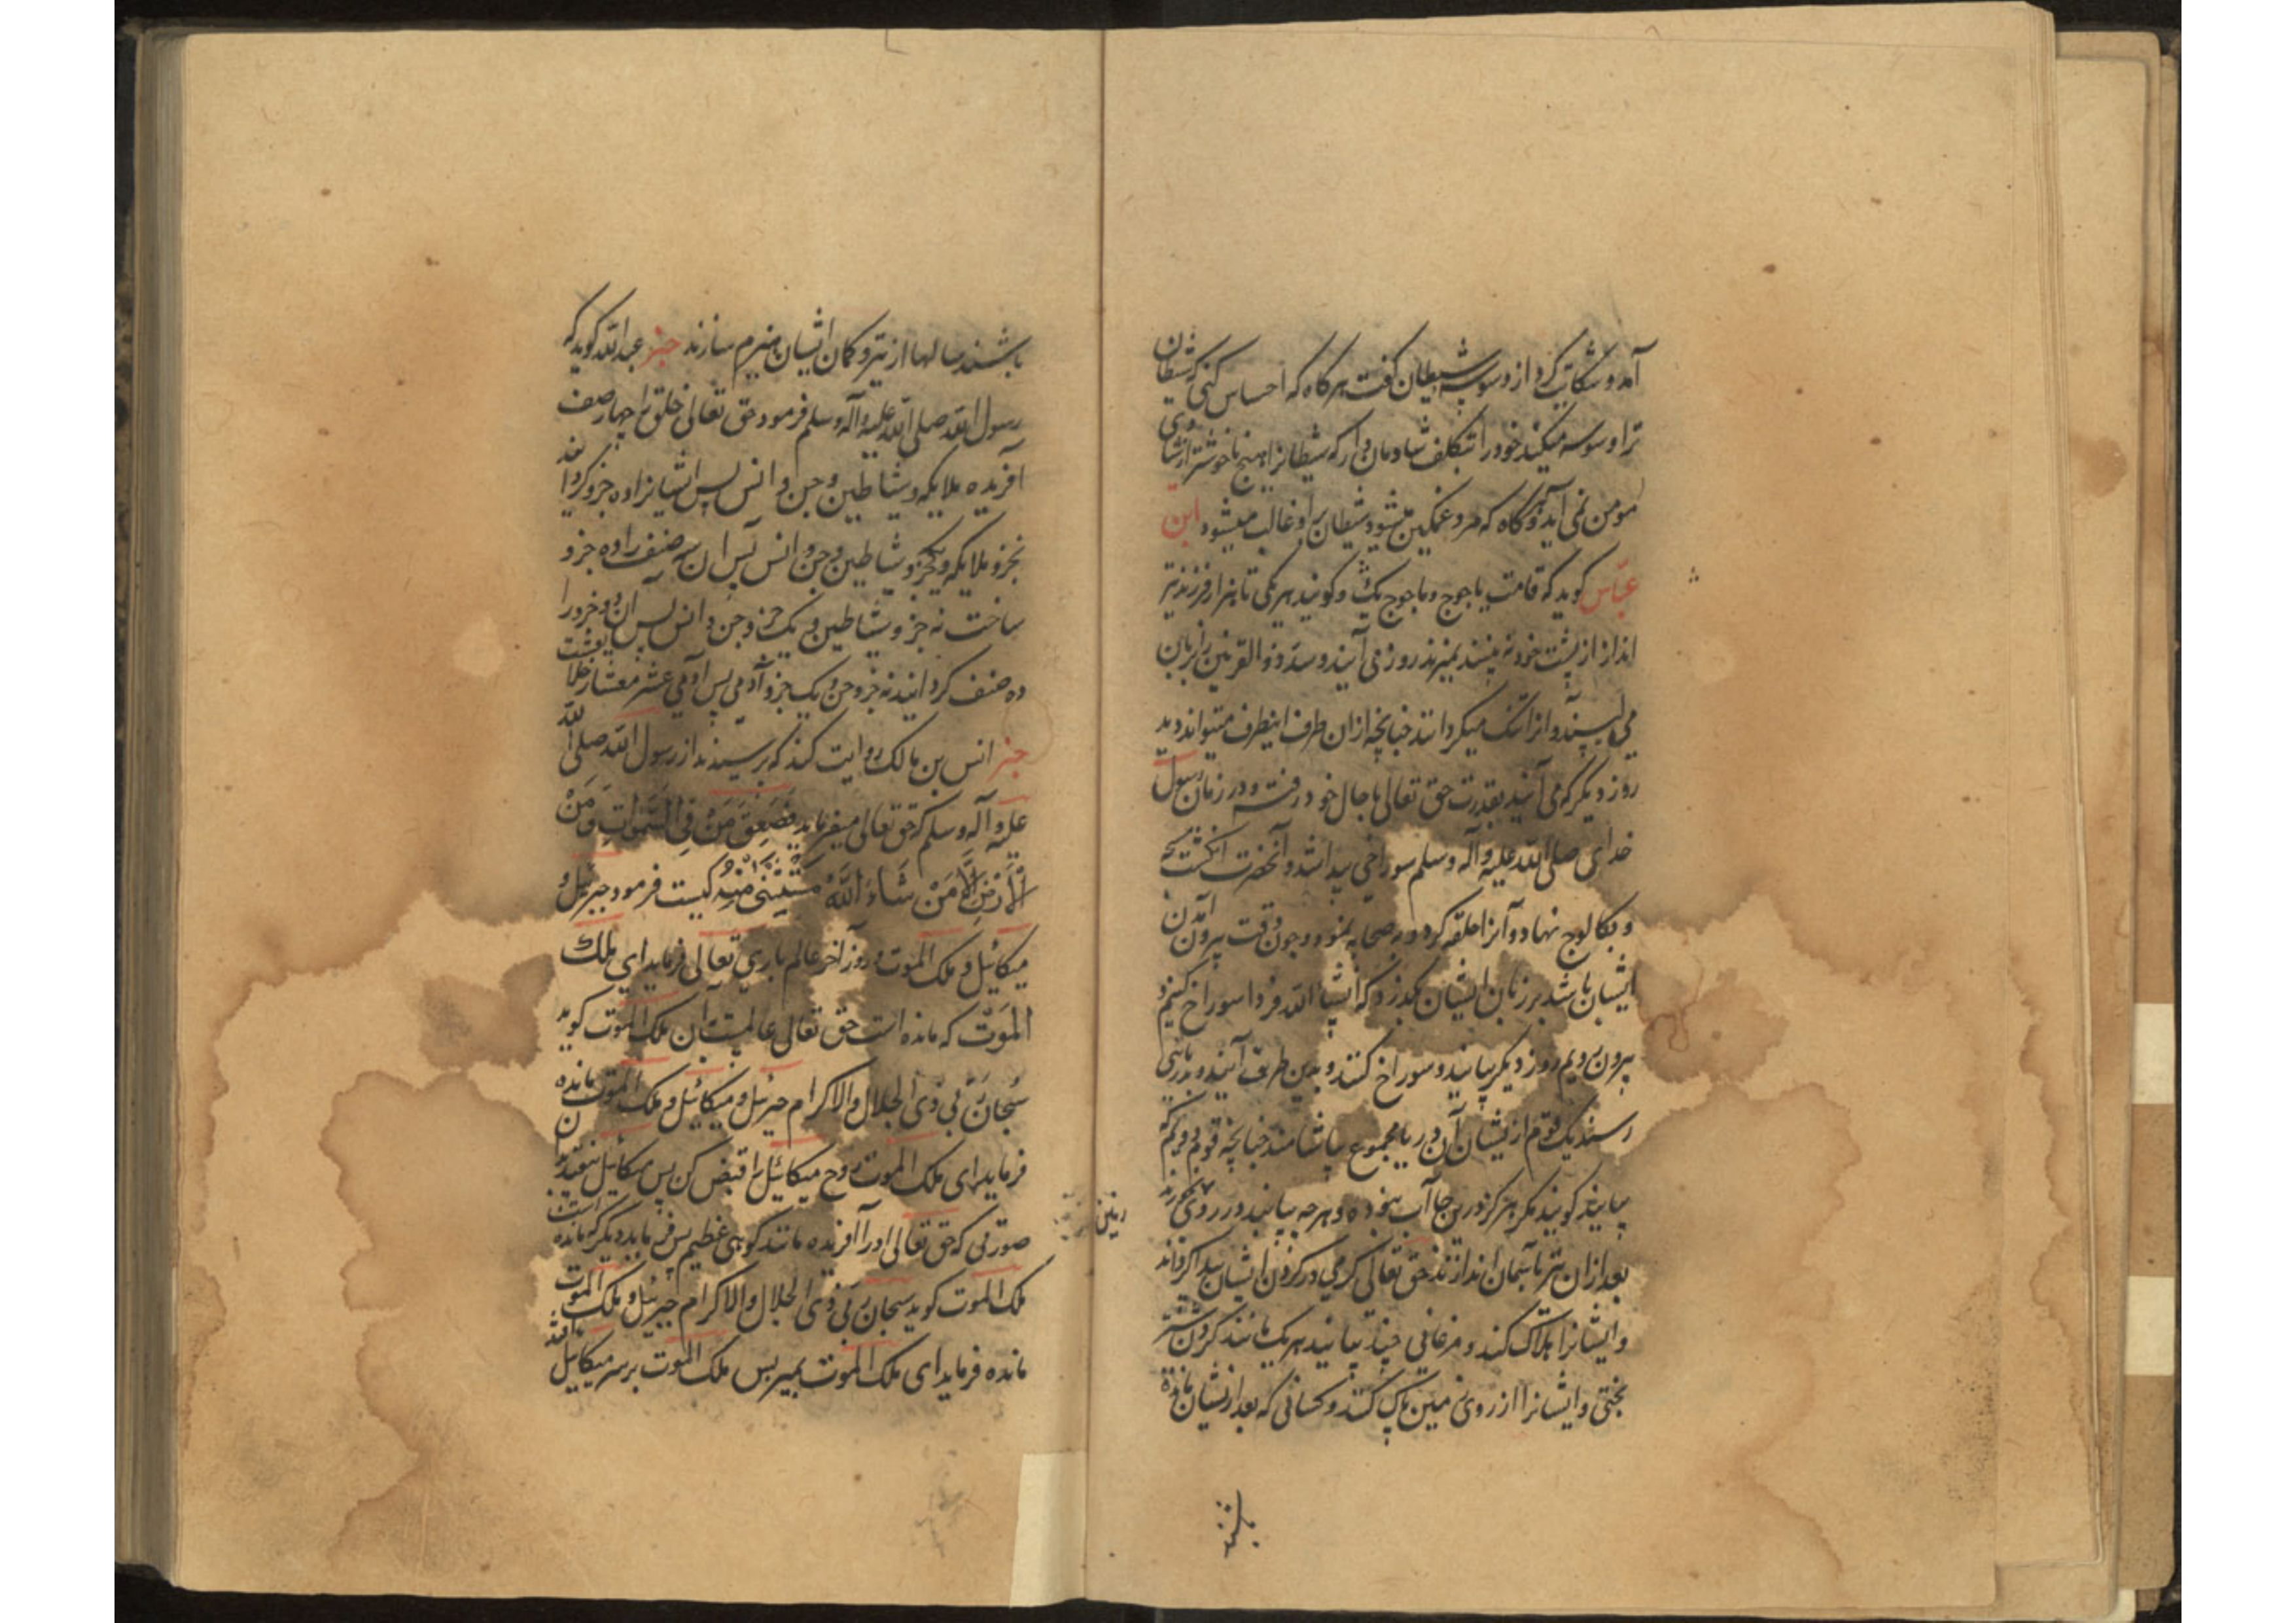 آمد و شکایت کرد از وسوسه شیطان گفت هرگاه که احساس کنی که شیطان
ترا وسوسه میکند خود را بتکلف شادمان دار که شیطانرا هیچ ناخوشتر از شادی
مومن نمی آید و آنگاه که مرد غمگین میشود شیطان بر او غالب میشود ابن
عباس گوید که قامت یاجوج و ماجوج یک و گویند هر یکی تا هزار فرزند تیر
انداز از پشت خود نه بینند نمیرند روز می آیند و سد ذو القرنین را بزبان
می لیسند و آنرا تنک میگردانند چنانچه از ان طرف اینطرف میتوانند دید
روز دیگر که می آیند بقدرت حق تعالی بحال خود رفته و در زمان رسول
خدای صلی الله علیه وآله وسلم سوراخی پیدا شد و آنحضرت انگشت
نهاد و آنرا حلقه کرد و به صحابه نمود و چون وقت بیرون آمدن
ایشان باشد بر زبان ایشان گذرد که انشا الله فردا سوراخ کنیم و
بیرون رویم روز دیگر بیایند و سوراخ کنند و بدین طرف آیند و بدریای
رسند یک قوم از یشان آن دریا مجموع بیاشامند چنانچه قوم دویم که
بیایند گویند مگر هرگز درین جا آب نبوده و هرچه بیابند در روی زمین بخورند
بعد از ان تیر باسمان اندازند حق تعالی کرمی در گردن ایشان پیدا گرداند
و ایشانرا هلاک کند و مرغانی چند بیایند هر یک مانند گردن شتر
بختی و ایشانرا از روی زمین پاک کنند و کسانی که بعد از یشان مانده
باشند
باشند سالها از تیر و کمان ایشان هیزم سازند خبر عبد الله گوید که
رسول الله صلی الله علیه وآله وسلم فرمود حق تعالی خلق را چهار صنف
آفریده ملایکه و شیاطین و جن و انس پس ایشانرا ده جزو گردانید
نه جزو ملایکه و یکجزو شیاطین و جن و انس پس ان سه صنف را ده جزو
ساخت نه جزو شیاطین و یک جزو جن و انس پس آن دو جزو را
ده صنف گردانید نه جزو جن و یک جزو آدمی پس آدمی عشر معشار خلا یقست
خبر انس بن مالک روایت کند که پرسیدند از رسول الله صلی الله
علیه وآله وسلم که حق تعالی میفرماید فَصَعِقَ مَنْ فِی السَّمٰوَاتِ وَمَنْ
فِی الْاَرْضِ اِلَّا مَنْ شَاءَ اللّٰهُ مستثنی منه کیست فرمود جبرئیل و
میکائیل و ملک الموت و روز آخر عالم باری تعالی فرماید ای ملک
الموت که مانده است حق تعالی عالمست بآن ملک الموت گوید
سُبحان ربی ذی الجلال والاکرام جبرئیل و میکائیل و ملک الموت مانده
فرماید ای ملک الموت روح میکائیل را قبض کن پس میکائیل بیفتد بدان
صورتی که حق تعالی او را آفریده مانند کوهی عظیم پس فرماید دیگر که مانده است
ملک الموت گوید سبحان ربی ذی الجلال والاکرام جبرئیل و ملک الموت
مانده فرماید ای ملک الموت بمیر پس ملک الموت بر سر میکاییل افتد